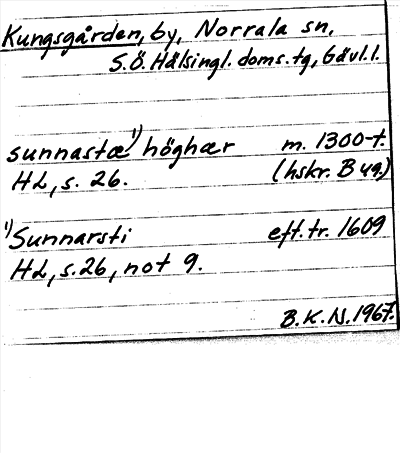 Kungsgården, by, Norrala sn,
S.Ö. Hälsingl. doms. tg, Gävl.l.
sunnastæ¹⁾ höghær m. 1300-t.
HL, s. 26. (hskr. B ug.)
¹⁾ Sunnarsti eft. tr. 1609
HL, s.26, not 9.
B.K.N. 1967.